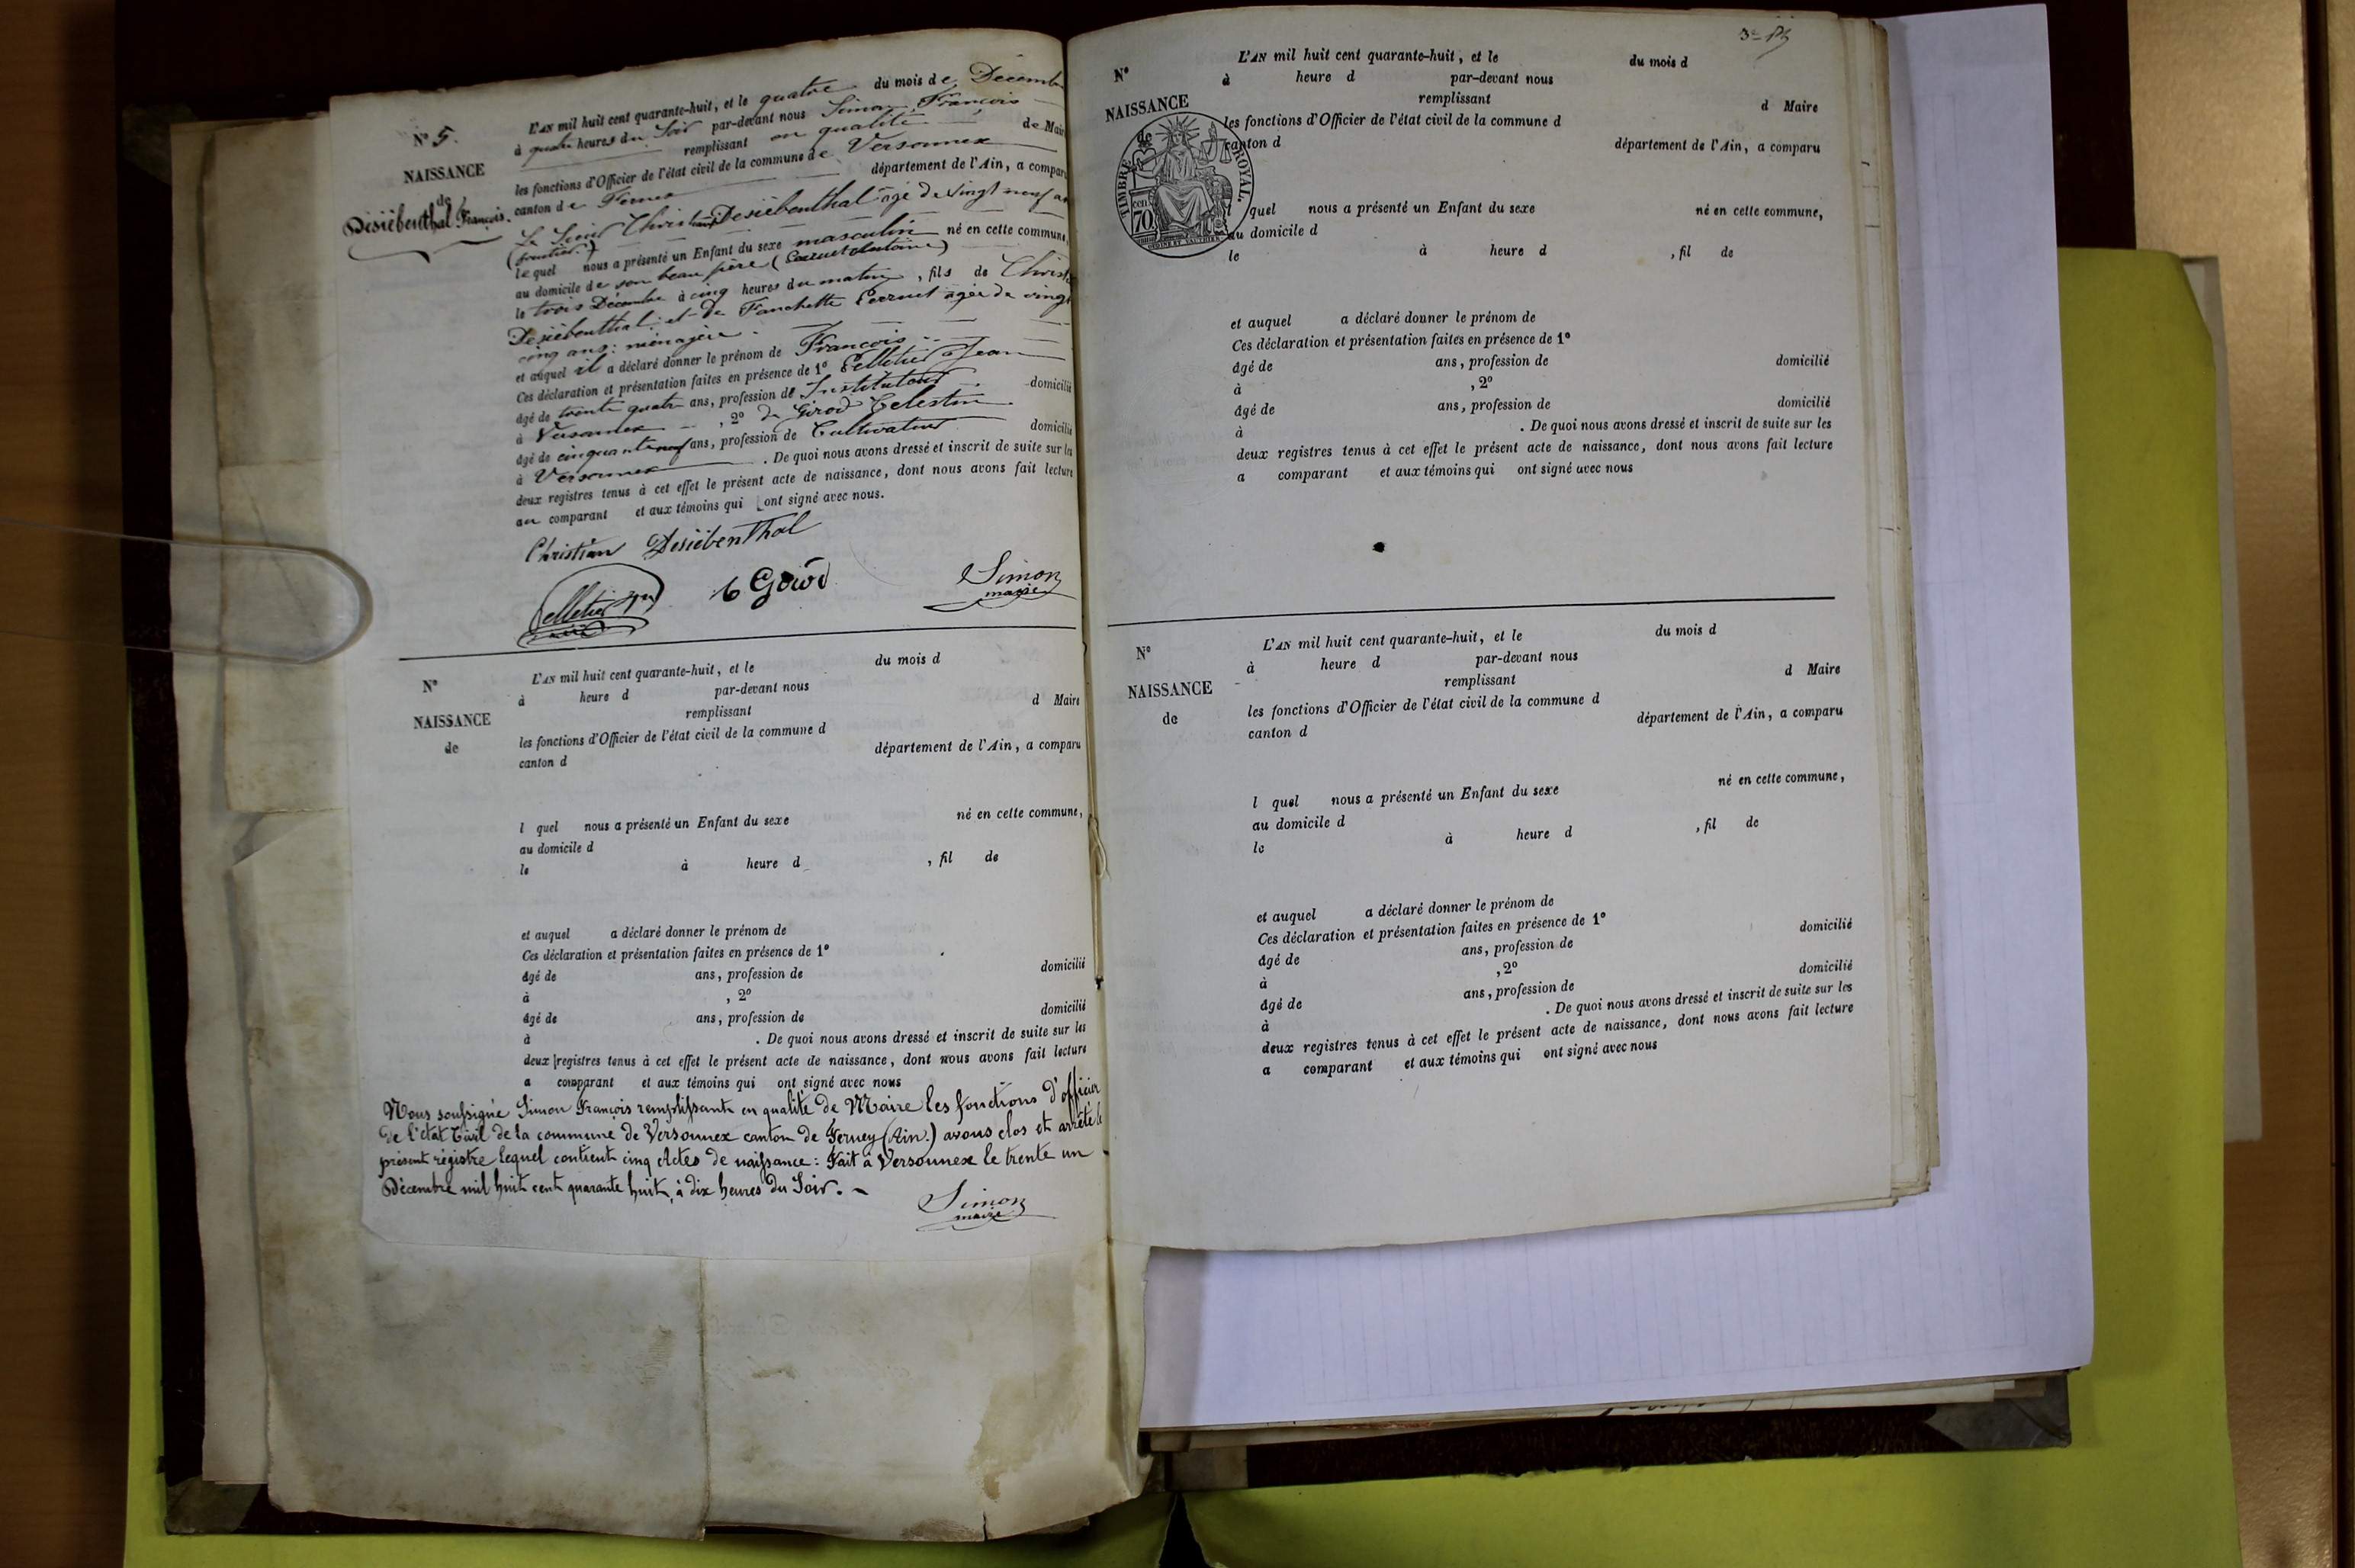 N° 5.
NAISSANCE
de
Desiëbenthal François.
L'AN mil huit cent quarante-huit, et le quatre du mois de Décembre
à quatre heures du Soir par-devant nous Simon François
remplissant en qualité de Maire
les fonctions d'Officier de l'état civil de la commune de Versonnex
canton de Ferney département de l'Ain, a comparu
Le Sieur Christian Desiëbenthal âgé de vingt neuf ans
(fruitier.)
lequel nous a présenté un Enfant du sexe masculin né en cette commune,
au domicile de son beau père
le trois Décembre à cinq heures du matin, fils de Christian
Desiëbenthal et de Fanchette âgée de vingt
cinq ans: ménagère
et auquel il a déclaré donner le prénom de François
Ces déclaration et présentation faites en présence de 1° Pelletier Jean
âgé de trente quatre ans, profession de Instituteur domicilié
à Versonnex, 2° de Girod Celestin
âgé de cinquante neuf ans, profession de Cultivateur domicilié
à Versonnex. De quoi nous avons dressé et inscrit de suite sur les
deux registres tenus à cet effet le présent acte de naissance, dont nous avons fait lecture
au comparant et aux témoins qui ont signé avec nous.
Christian Desiëbenthal
Pelletier
Girod
Simon
maire
N°
NAISSANCE
de
L'AN mil huit cent quarante-huit, et le du mois d
à heure d par-devant nous
remplissant d Maire
les fonctions d'Officier de l'état civil de la commune d
canton d département de l'Ain, a comparu
l quel nous a présenté un Enfant du sexe né en cette commune,
au domicile d
le à heure d , fil de
et auquel a déclaré donner le prénom de
Ces déclaration et présentation faites en présence de 1°
âgé de ans, profession de domicilié
à , 2°
âgé de ans, profession de domicilié
à . De quoi nous avons dressé et inscrit de suite sur les
deux registres tenus à cet effet le présent acte de naissance, dont nous avons fait lecture
a comparant et aux témoins qui ont signé avec nous
Nous soussigné Simon François remplissant en qualité de Maire les fonctions d'officier
de l'état Civil de la commune de Versonnex canton de Ferney (Ain.) avons clos et arrêté le
présent régistre lequel contient cinq Actes de naissance: Fait à Versonnex le trente un
Décembre mil huit cent quarante huit, à dix heures du Soir.
Simon
maire
N°
NAISSANCE
de
TIMBRE ROYAL
cen
70
L'AN mil huit cent quarante-huit, et le du mois d
à heure d par-devant nous
remplissant d Maire
les fonctions d'Officier de l'état civil de la commune d
canton d département de l'Ain, a comparu
l quel nous a présenté un Enfant du sexe né en cette commune,
au domicile d
le à heure d , fil de
et auquel a déclaré donner le prénom de
Ces déclaration et présentation faites en présence de 1°
âgé de ans, profession de domicilié
à , 2°
âgé de ans, profession de domicilié
à . De quoi nous avons dressé et inscrit de suite sur les
deux registres tenus à cet effet le présent acte de naissance, dont nous avons fait lecture
a comparant et aux témoins qui ont signé avec nous
N°
NAISSANCE
de
L'AN mil huit cent quarante-huit, et le du mois d
à heure d par-devant nous
remplissant d Maire
les fonctions d'Officier de l'état civil de la commune d
canton d département de l'Ain, a comparu
l quel nous a présenté un Enfant du sexe né en cette commune,
au domicile d
le à heure d , fil de
et auquel a déclaré donner le prénom de
Ces déclaration et présentation faites en présence de 1°
âgé de ans, profession de domicilié
à , 2°
âgé de ans, profession de domicilié
à . De quoi nous avons dressé et inscrit de suite sur les
deux registres tenus à cet effet le présent acte de naissance, dont nous avons fait lecture
a comparant et aux témoins qui ont signé avec nous